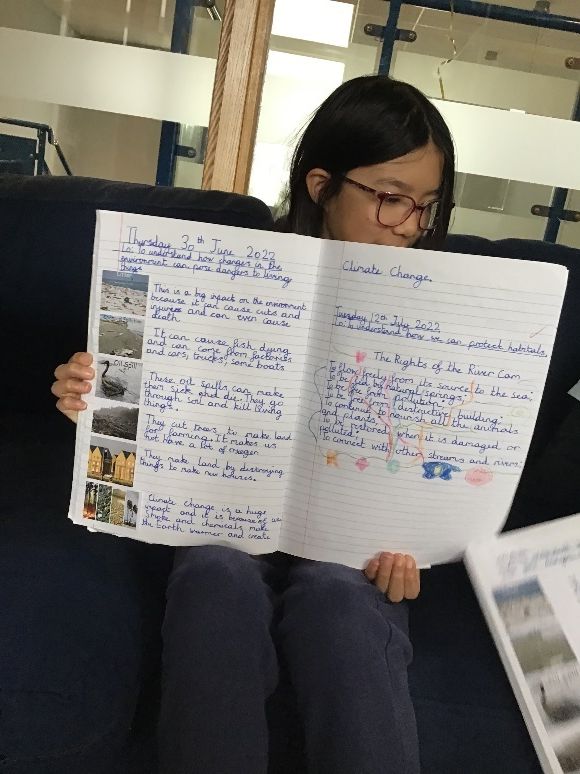 Thursday 30th June 2022
Ln: To understand how changes in the
environment can pose dangers to living
things
This is a big inpact on the environment
because it can cause cuts and
injuress and can even cause
It can cause fish dying
and can come from factories
and cars, trucks, some boats
Oil Spill
These oil spills can make
them sick and die. They go
through soil and kill living
things.
They cut trees to make land
for farming. It makes us
not have a lot of
They make land by destroying
things to make new houses.
Climate Change is a huge
inpact and it is because of us
smoke and chemicals make
the Earth warmer and create
Climate Change.
Tuesday 12th July 2022
Ln: To understand how we can protect habitats
The Rights of the River Cam
To flow freely from its source to the sea;
To be fed by natural springs;
To be free from pollution;
To be free from destructive building;
To continue to nourish all the animals
and plants;
To be restored when it is damaged or
polluted;
To connect with other streams and rivers;